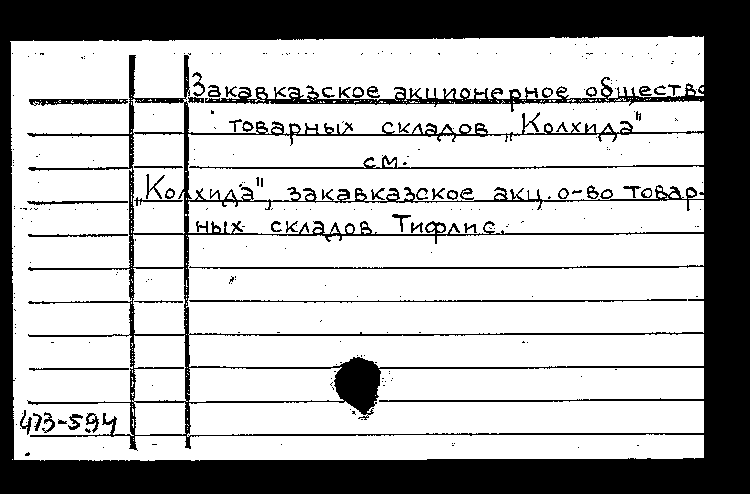 Закавказское акционерное общество
товарных складов „Колхида"
см.
„Колхида", закавказское акц. о-во товар-
ных складов. Тифлис.
473-594